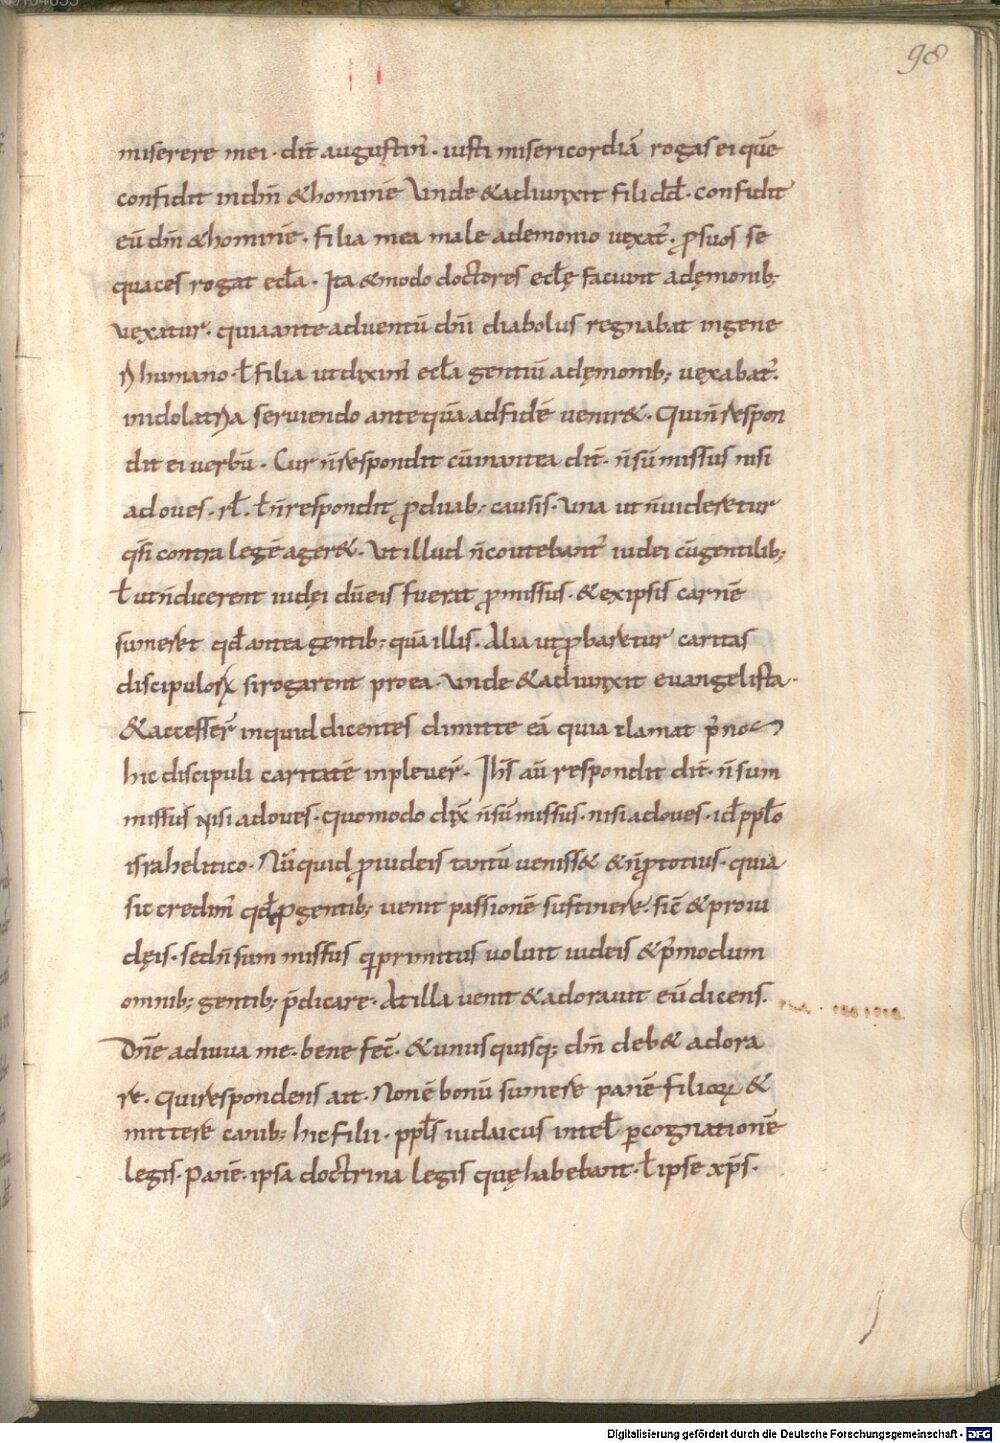 98
miserere mei · dit̄ augustin̄ · iusti misericordiā rogas ei quē
confidit in dn̄i & hominē Vnde & adiunxit fili dd̄ · confidit
eū dn̄i & hominē · filia mea male a demonio vexat᷑ · ꝓ suos se
quaces rogat eccl̄a · Ita & modo doctores eccl̄ę faciunt a dęmonib;
vexatur · quia ante adventū dn̄i diabolus regnabat in gene
r̄ humano · ł filia ut diximꝰ eccl̄a gentiū a dęmonib; vexabat᷑ ·
in idolatria serviendo ante quā ad fidē venir& · Qui n̄ respon
dit ei verbū · Cur n̄ respondit cū in antea dit̄ · n̄ sū missus nisi
ad oves · rł · ł n̄ respondit ꝓ duab; causis · Vna ut n̄ videretur
qsī contra legē ager& · Vt illud n̄ coutebant᷑ iudei cū gentilib;
ł ut n̄ dicerent iudęi dū eis fuerit ꝓmissus · & ex ipsis carnē
sumeret qd̄ antea gentib; quā illis · Alia ut ꝓbaretur caritas
discipuloꝝ si rogarent pro ea · Vnde & adiunxit evangelista ·
& accesser̄ inquid dicentes dimitte eā quia clamat p̄ nos
hic discipuli caritatē inplever̄ · Ihs̄ aū respondit dit̄ · n̄ sum
missus Nisi ad oves · quomodo dix̄ n̄ sū missus · nisi ad oves · id̄ ppło
israhelitico · Nūquid ꝓ iudeis tantū veniss& & n̄ ꝓ totius · quia
sic credim̄ qd̄ ꝓ gentib; venit passionē sustinere · sic̄ & pro iu
dęis · sed n̄ sum missus q̄ primitus voluit iudeis & p̄modum
omnib; gentib; p̄dicare · At illa venit & adoravit eū dicens ·
Dn̄e adiuva me · bene fec̄ · & unus quisq; dn̄i deb& adora
re · Qui respondens ait · Non ē bonū sumere panē filioꝝ &
mittere canib; hic filii · ppłs iudaicus intel̄ ꝑ cognationē
legis · Panē · ipsa doctrina legis quę habebant · ł ipse xp̄s ·
Digitalisierung gefördert durch die Deutsche Forschungsgemeinschaft - DFG